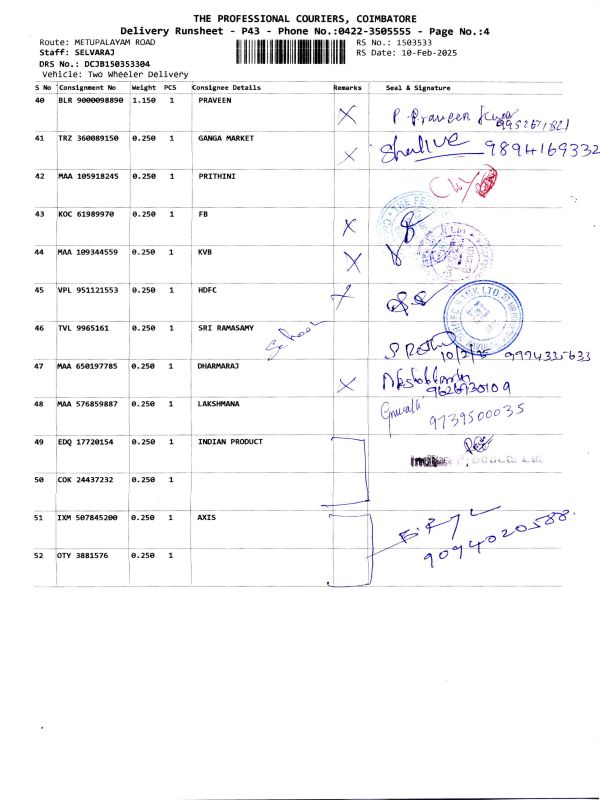 THE PROFESSIONAL COURIERS, COIMBATORE
Delivery Runsheet - P43 - Phone No.:0422-3505555 - Page No.:4
Route: METUPALAYAM ROAD RS No.: 1503533
Staff: SELVARAJ RS Date: 10-Feb-2025
DRS No.: DCJB150353304
Vehicle: Two Wheeler Delivery
S No Consignment No Weight PCS Consignee Details Remarks Seal & Signature
40 BLR 9000098890 1.150 1 PRAVEEN X P. Praveen
41 TRZ 360089150 0.250 1 GANGA MARKET X 9894169332
42 MAA 105918245 0.250 1 PRITHINI
43 KOC 61989970 0.250 1 FB X
44 MAA 109344559 0.250 1 KVB X
45 VPL 951121553 0.250 1 HDFC X
46 TVL 9965161 0.250 1 SRI RAMASAMY 10/2/25 9994335633
47 MAA 650197785 0.250 1 DHARMARAJ X 9626930109
48 MAA 576859887 0.250 1 LAKSHMANA 9739500035
49 EDQ 17720154 0.250 1 INDIAN PRODUCT
50 COK 24437232 0.250 1
51 IXM 507845200 0.250 1 AXIS 9094020588
52 OTY 3881576 0.250 1